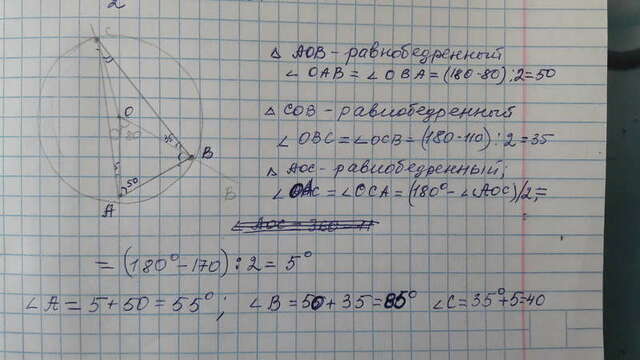 2
C
O
80
B
B
5
50
A
△ AOB - равнобедренный
∠ OAB = ∠ OBA = (180-80) : 2 = 50
△ COB - равнобедренный
∠ OBC = ∠ OCB = (180-110) : 2 = 35
△ AOC - равнобедренный;
∠ OAC = ∠ OCA = (180° - ∠ AOC)/2 =
∠ AOC = 360 - 11
= (180° - 170) : 2 = 5°
∠ A = 5 + 50 = 55° ; ∠ B = 50 + 35 = 85° ∠ C = 35° + 5 = 40